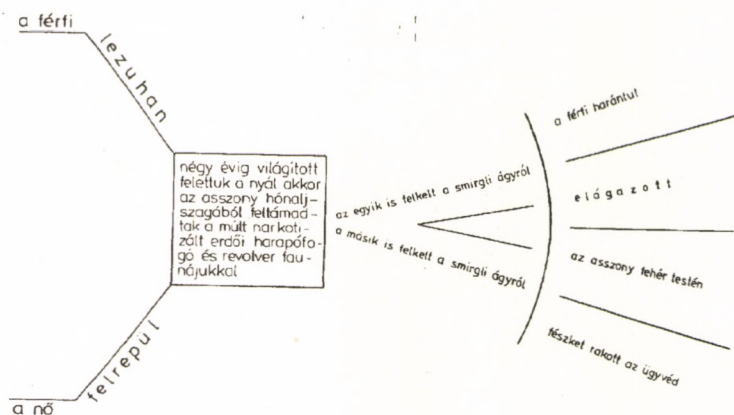 a férfi
lezuhan
négy évig világított
felettük a nyál akkor
az asszony hónalj–
szagából feltámad–
tak a múlt narkoti–
zált erdői harapófo–
gó és revolver fau–
nájukkal
felrepül
a nő
az egyik is felkelt a smirgli ágyról
a másik is felkelt a smirgli ágyról
a férfi harántul
elágazott
az asszony fehér testén
fészket rakott az ügyvéd